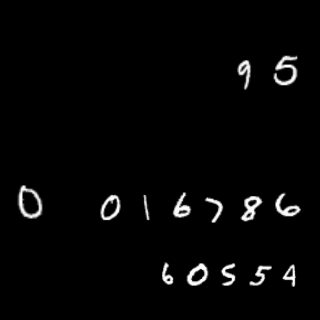 95
0 016786
60554